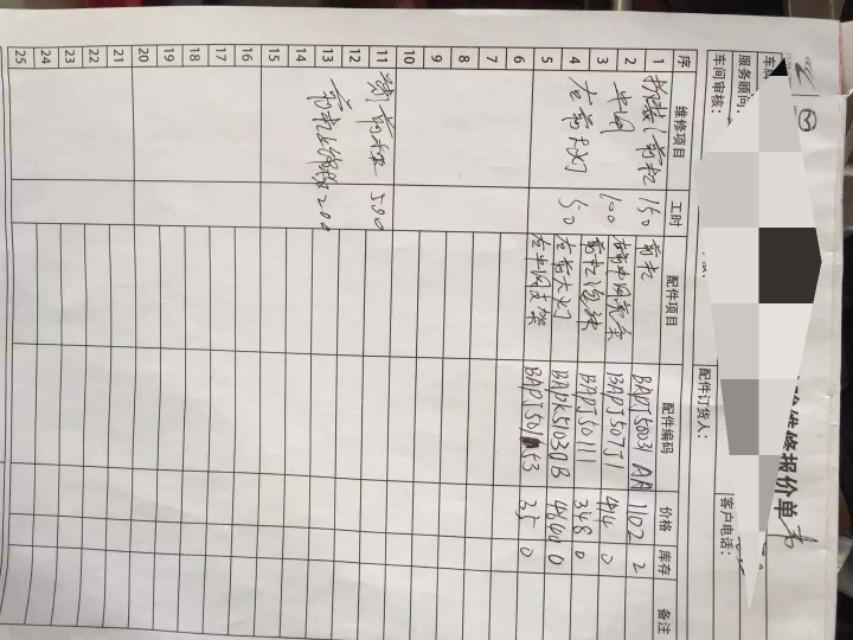 维修报价单
车间审核：
服务顾问：
配件订货人：
客户电话：
序 维修项目 工时 配件项目 配件编码 价格 库存 备注
1 拆装(前杠 150 前杠 BAPJ50031 AA 1102 2
2 中网 100 BAPJ50731 414 0
3 左前大灯 50 BAPJ50111 348 0
4 左前大灯 BAPK51030B 0
5 左中网支架 35 0
6
7
8
9
10
11 前杠 500
12
13 前杠 200
14
15
16
17
18
19
20
21
22
23
24
25